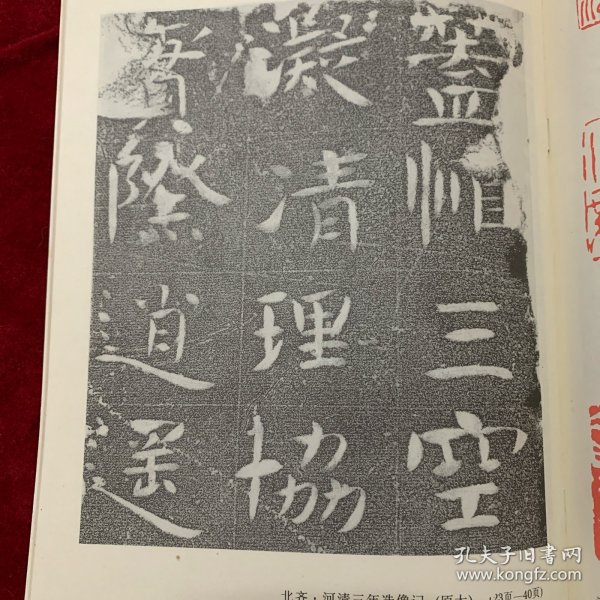 三空
凝清理協
實際逍遥
北齐·河清三年造像记(原大)(23页—40页)
孔夫子旧书网
www.kongfz.com